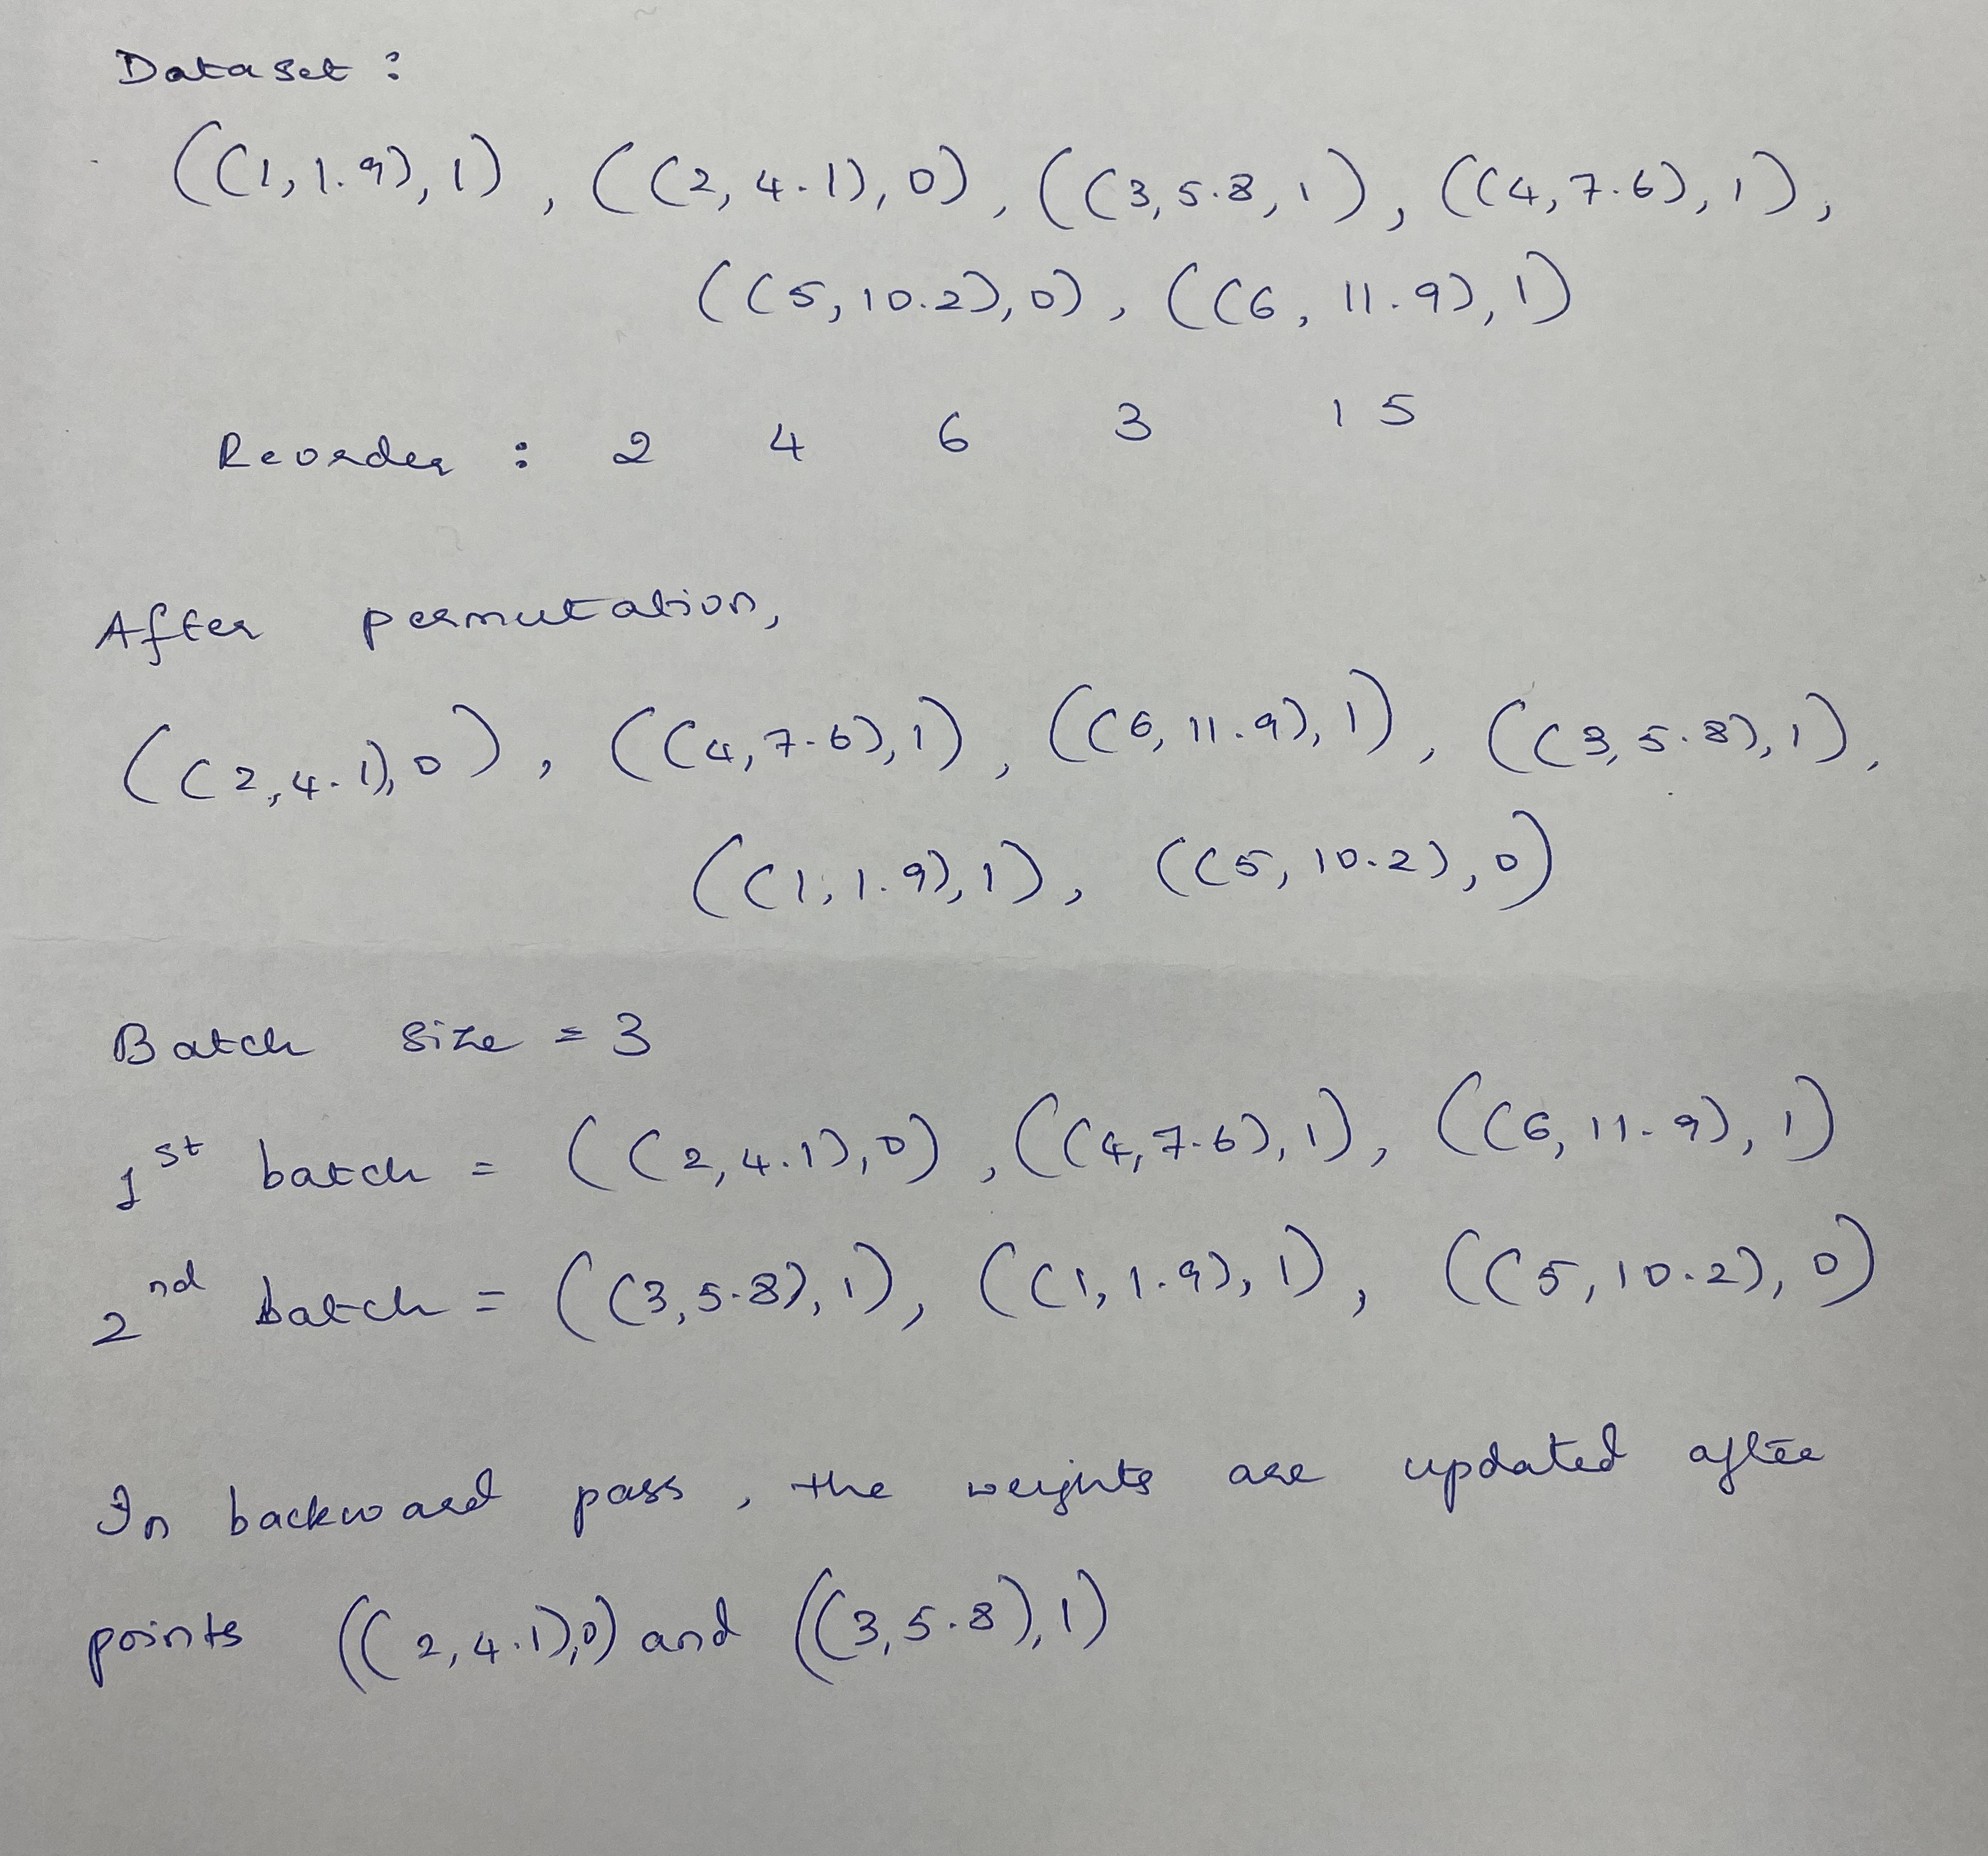 Dataset :
((1,1.9),1), ((2,4.1),0), ((3,5.8,1), ((4,7.6),1),
((5,10.2),0), ((6,11.9),1)
Reorder : 2 4 6 3 1 5
After permutation,
((2,4.1),0), ((4,7.6),1), ((6,11.9),1), ((3,5.8),1),
((1,1.9),1), ((5,10.2),0)
Batch size = 3
1st batch = ((2,4.1),0), ((4,7.6),1), ((6,11.9),1)
2nd batch = ((3,5.8),1), ((1,1.9),1), ((5,10.2),0)
In backward pass, the weights are updated after
points ((2,4.1),0) and ((3,5.8),1)